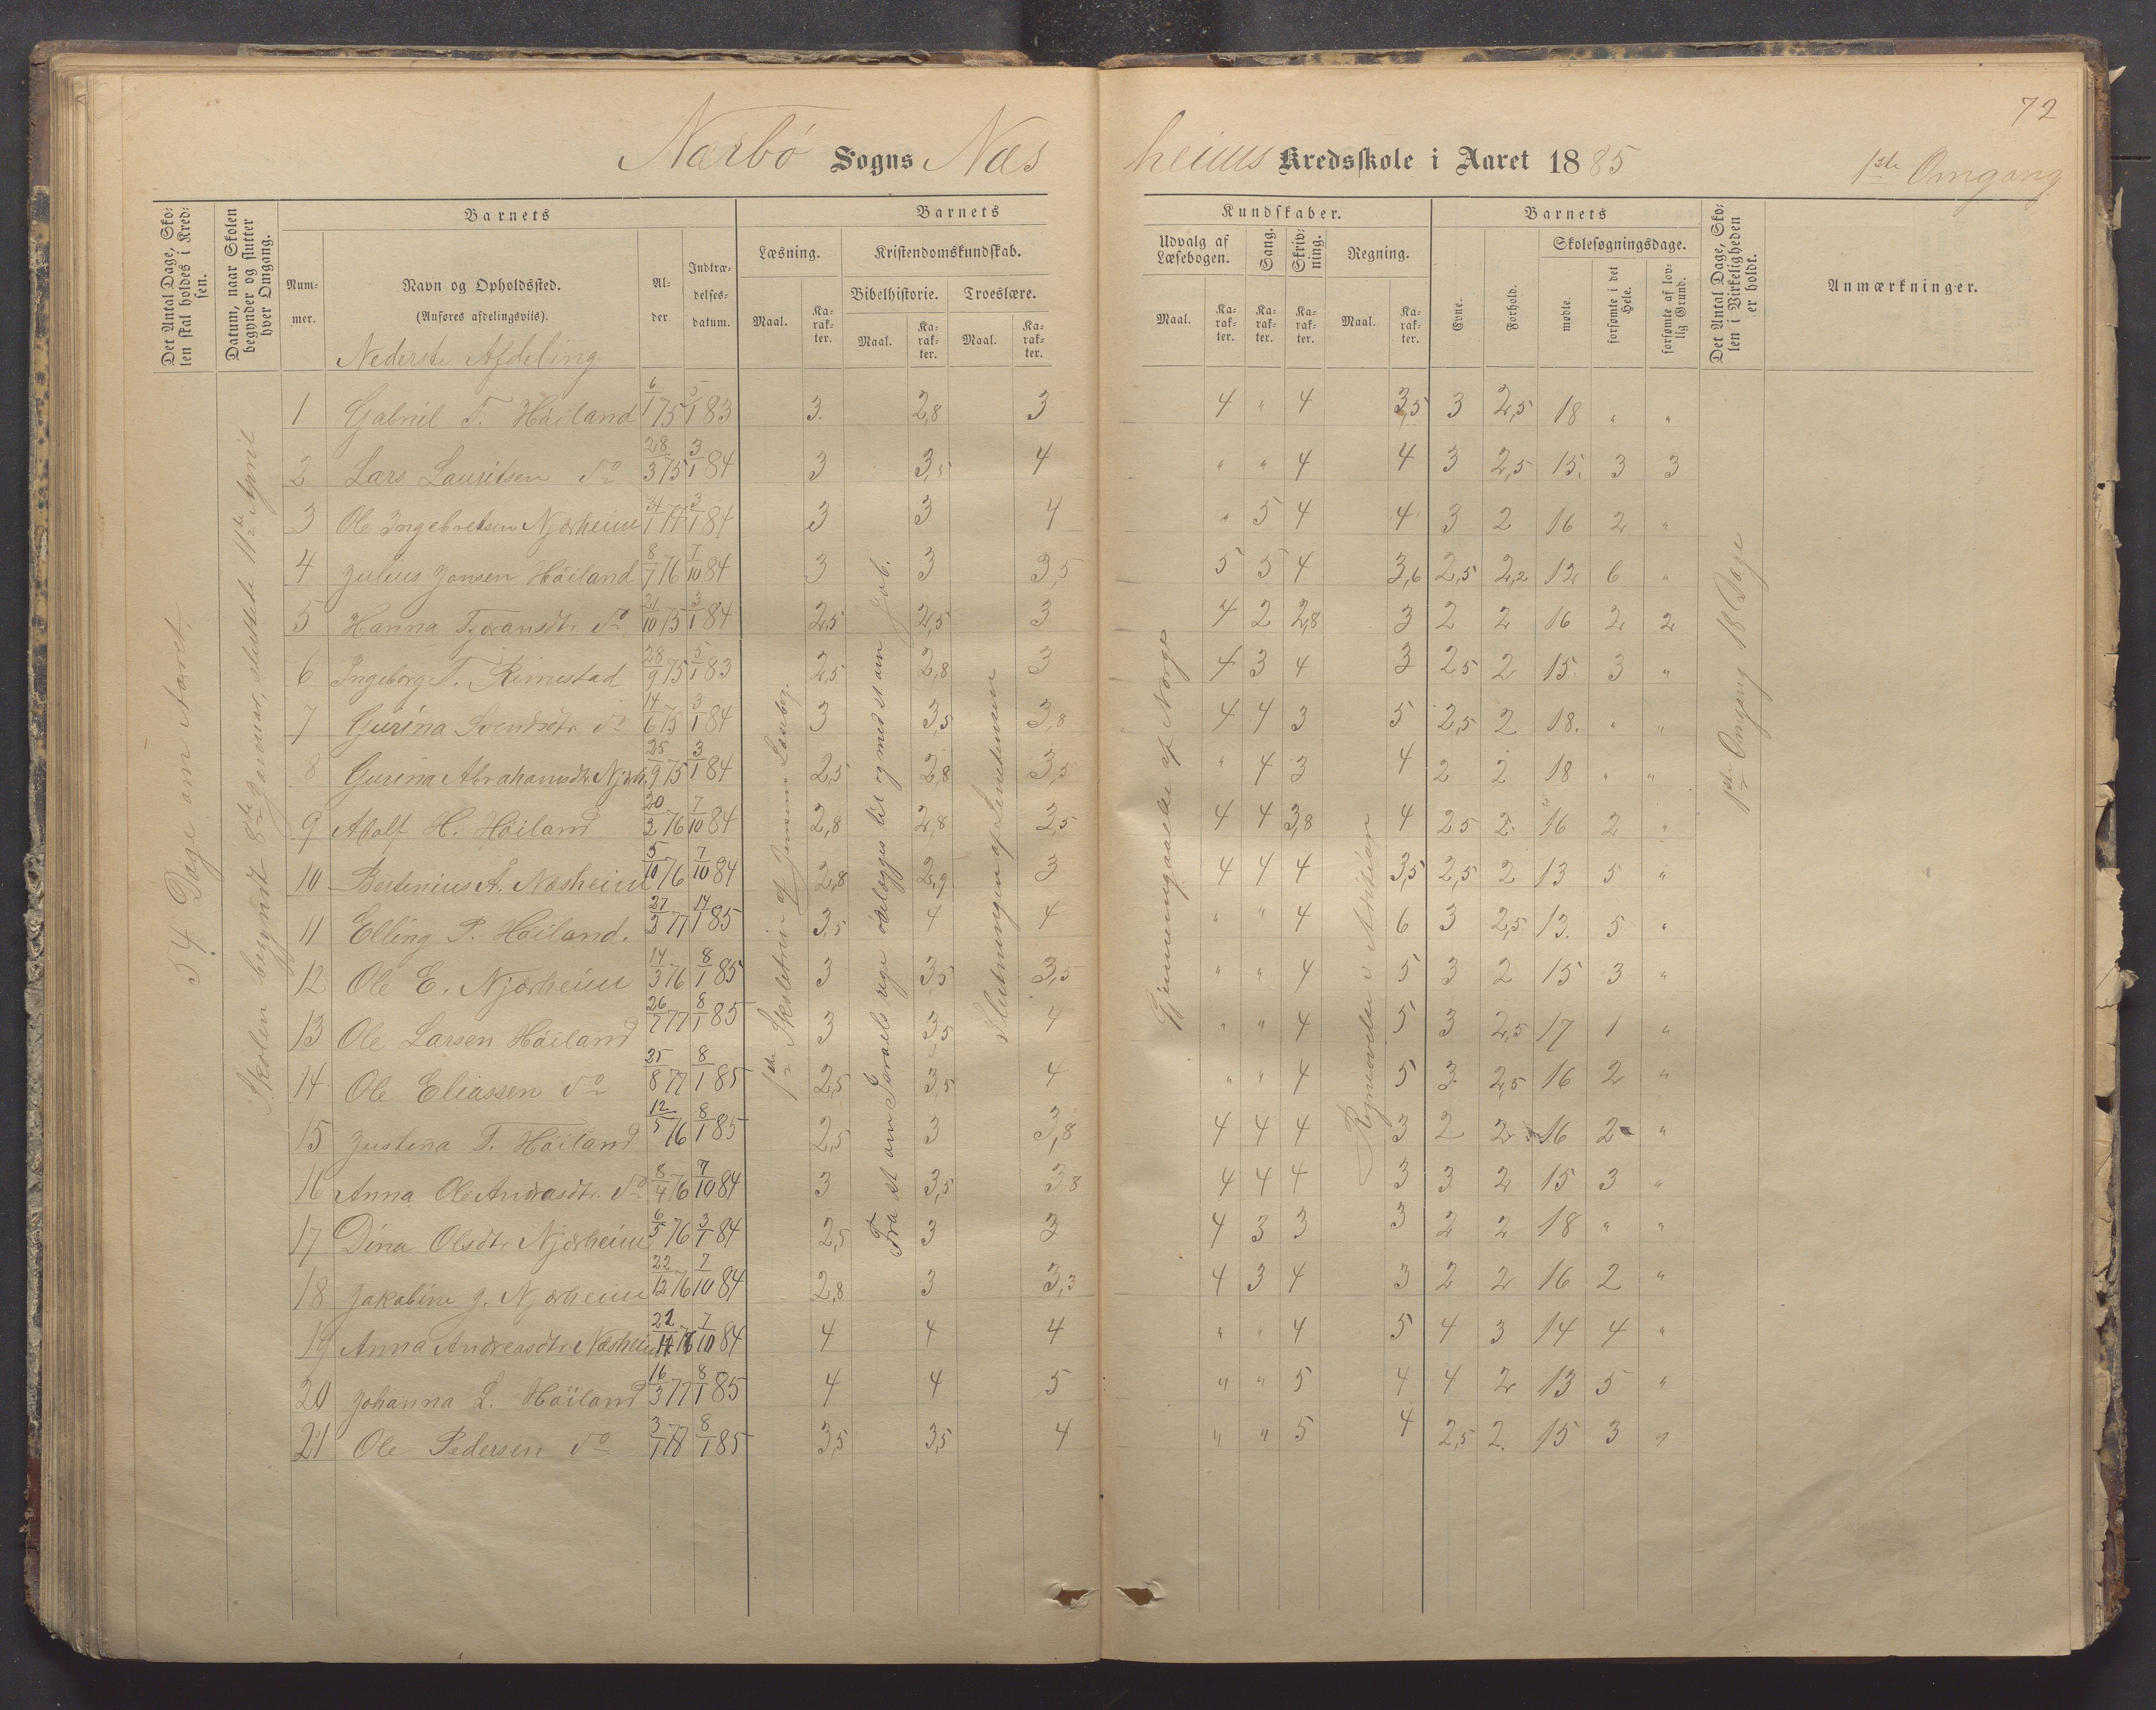 72
Nærbö Sogns Næsheims Kredsskole i Aaret 1885 1ste Omgang
Det Antal Dage, Skolen skal holdes i Kredsen.
Datum, naar Skolen begynder og slutter hver Omgang.
Barnets
Nummer.
Navn og Opholdssted.
(Anføres afdelingsvis).
Alder.
Indtrædelsesdatum.
Barnets Kundskaber.
Læsning.
Maal. Karakter.
Kristendomskundskab.
Bibelhistorie. Troeslære.
Maal. Karakter. Maal. Karakter.
Udvalg af Læsebogen.
Maal. Karakter.
Sang. Karakter.
Skrivning. Karakter.
Regning.
Maal. Karakter.
Barnets
Evne. Forhold.
Skolesøgningsdage.
mødte. forsømte i det Hele. forsømte af lovlig Grund.
Det Antal Dage, Skolen i Virkeligheden er holdt.
Anmærkninger.
Nederste Afdeling
54 Dage om Aaret.
Skolen begyndt 8de Januar, sluttede 11te April
1ste Skoletrin af Jensens Læsebog.
Fra at om Israels rige ødelægges til og med st om Job.
Slutningen af Sætningen
Gjennemgaaelse af Norge
Regneøvelse
1ste Omgang 18 Dage
1 Gabriel T. Höiland 6/1 75 5/1 83 3. 2,8 3 4 " 4 3,5 3 2,5 18 " "
2 Lars Lauritsen do 28/3 75 3/1 84 3 3,5 4 " " 4 4 3 2,5 15. 3 3
3 Ole Ingebretsen Njærheim 3/1 84 3 3 4 " 5 4 4 3 2 16 2 "
4 Julius Jonsen Höiland 8/7 76 7/10 84 3 3 3,5 5 5 4 3,6 2,5 2,2 12 6 "
5 Hanna Tjeransdtr. do 21/10 75 3/1 84 2,5 2,5 3 4 2 2,8 3 2 2 16 2 2
6 Ingeborg T. Rimestad 28/9 75 5/1 83 2,5 2,8 3 4 3 4 3 2,5 2 15. 3 "
7 Gurina Svendsdtr do 14/6 75 3/1 84 3 3,5 3,8 4 4 3 5 2,5 2 18. " "
8 Gurina Abrahamsdtr. Njærh. 25/9 75 3/1 84 2,5 2,8 3,5 " 4 3 4 2 2 18 " "
9 Adolf H. Höiland 20/2 76 7/10 84 2,8 2,8 3,5 4 4 3,8 4 2,5 2. 16 2 "
10 Bertinius A. Næsheim 5/10 76 7/10 84 2,8 2,9 3 4 4 4 3,5 2,5 2 13 5 "
11 Elling P. Höiland. 27/3 77 14/1 85 3,5 4 4 " " 4 6 3 2,5 13. 5 "
12 Ole E. Njærheim 14/3 76 8/1 85 3 3,5 3,5 " " 4 5 3 2 15 3 "
13 Ole Larsen Höiland 26/7 77 8/1 85 3 3,5 4 " " 4 5 3 2,5 17 1 "
14 Ole Eliassen do 25/8 77 8/1 85 2,5 3,5 4 " " 4 5 3 2,5 16 2 "
15 Justina T. Höiland 12/5 76 8/1 85 2,5 3 3,8 4 4 4 3 2 2 16 2 "
16 Anna Ole Andrasdtr. do 8/4 76 7/10 84 3 3,5 3,8 4 4 4 3 3 2 15 3 "
17 Dina Olsdtr Njærheim 6/5 76 3/1 84 2,5 3 3 4 3 3 3 2 2 18 " "
18 Jakobine J. Njærheim 22/12 76 7/10 84 2,8 3 3,3 4 3 4 3 2 2 16 2 "
19 Anna Andreasdtr. Næsheim 76 7/10 84 4 4 4 " " 4 5 4 3 14 4 "
20 Johanna L. Höiland 16/3 77 8/1 85 4 4 5 " " 5 4 4 2 13 5 "
21 Ole Pedersen do 3/1 78 8/1 85 3,5 3,5 4 " " 5 4 2,5 2. 15 3 "